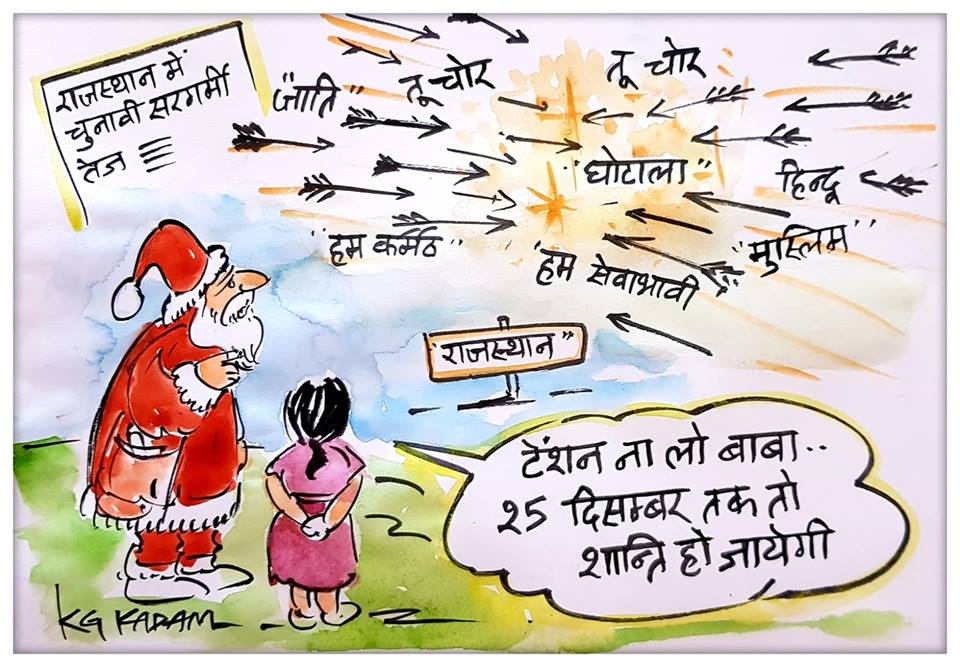 राजस्थान में
चुनावी सरगर्मी
तेज
"जाति"
तू चोर
तू चोर
"घोटाला"
हिन्दू
"हम कर्मठ"
हम सेवाभावी
"मुस्लिम"
"राजस्थान"
टेंशन ना लो बाबा..
25 दिसम्बर तक तो
शान्ति हो जायेगी
KG KADAM